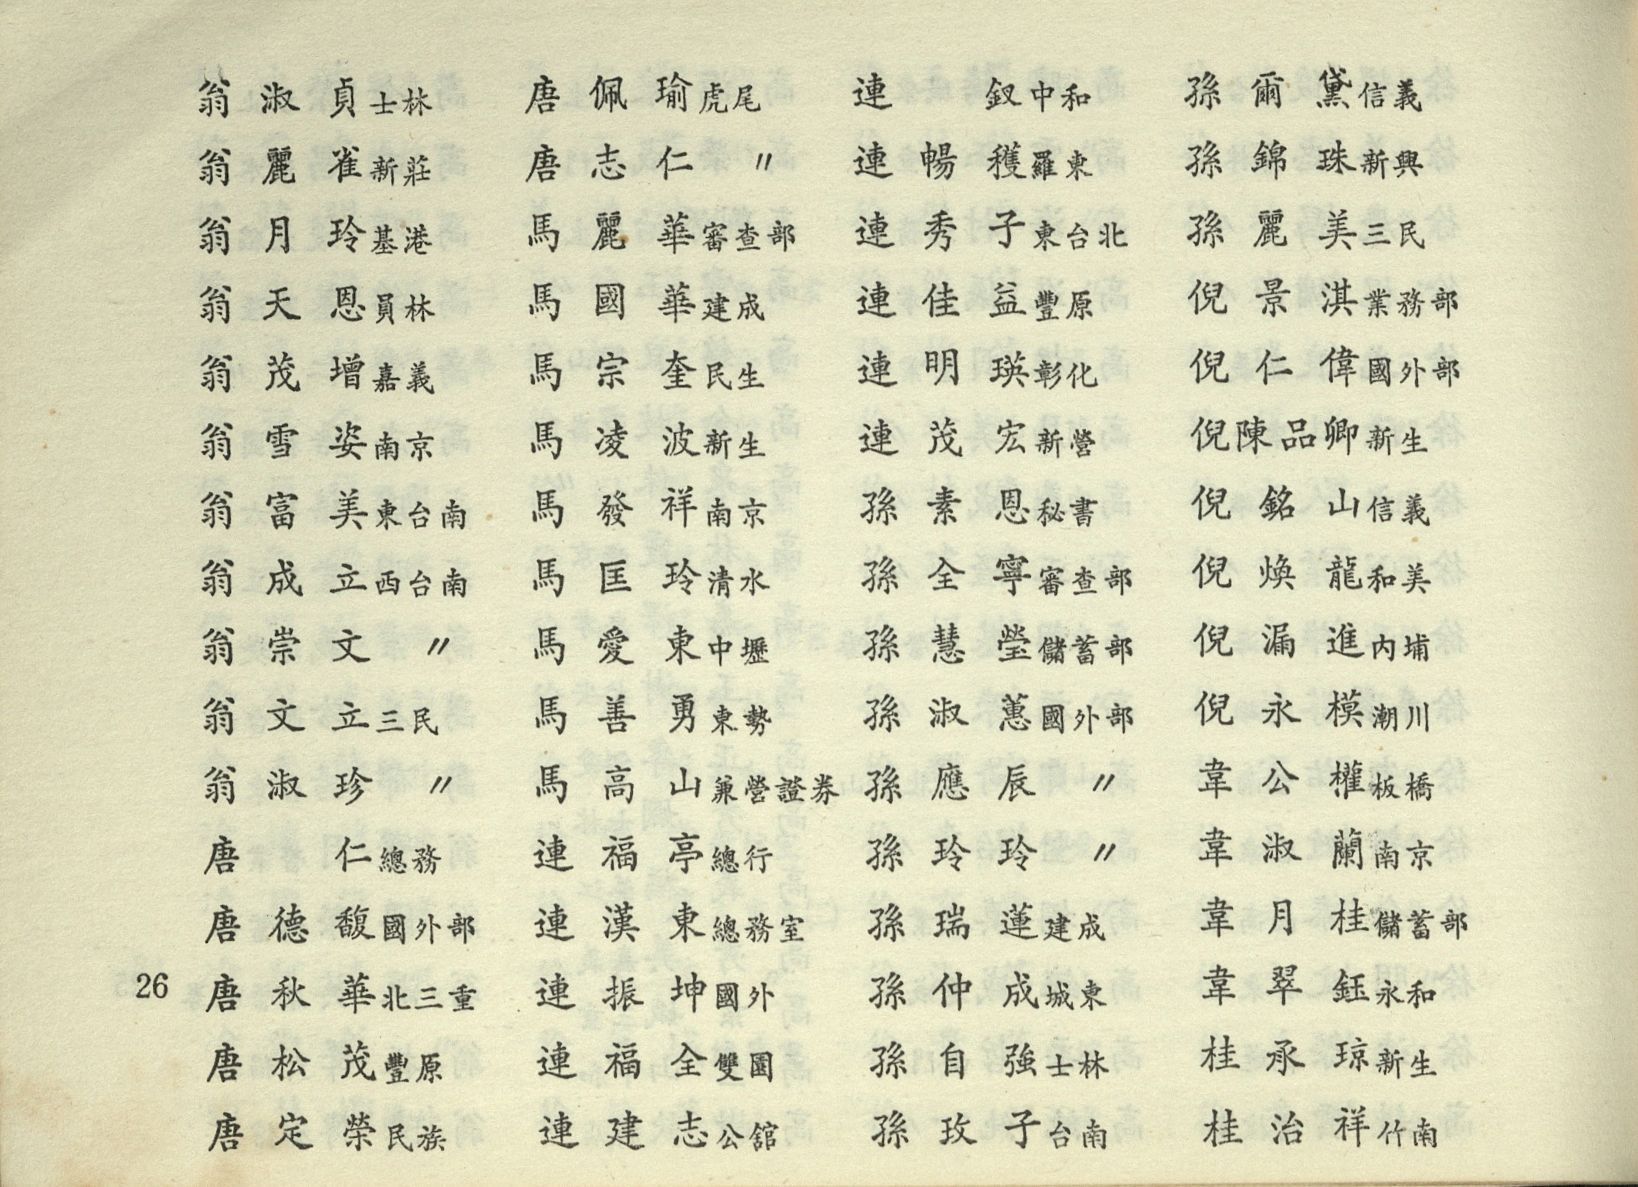 翁淑貞士林
翁麗雀新莊
翁月玲基港
翁天恩員林
翁茂增嘉義
翁雪姿南京
翁富美東台南
翁成立西台南
翁崇文〃
翁文立三民
翁淑珍〃
唐仁總務
唐德馥國外部
唐秋華北三重
唐松茂豐原
唐定榮民族
唐佩瑜虎尾
唐志仁〃
馬麗華審查部
馬國華建成
馬宗奎民生
馬凌波新生
馬發祥南京
馬匡玲清水
馬愛東中壢
馬善勇東勢
馬高山兼營證券
連福亭總行
連漢東總務室
連振坤國外
連福全雙園
連建志公館
連釵中和
連暢穫羅東
連秀子東台北
連佳益豐原
連明瑛彰化
連茂宏新營
孫素恩秘書
孫全寧審查部
孫慧瑩儲蓄部
孫淑蕙國外部
孫應辰〃
孫玲玲〃
孫瑞蓮建成
孫仲成城東
孫自強士林
孫玫子台南
孫爾黛信義
孫錦珠新興
孫麗美三民
倪景淇業務部
倪仁偉國外部
倪陳品卿新生
倪銘山信義
倪煥龍和美
倪漏進內埔
倪永模潮川
韋公權板橋
韋淑蘭南京
韋月桂儲蓄部
韋翠鈺永和
桂承琼新生
桂治祥竹南
26